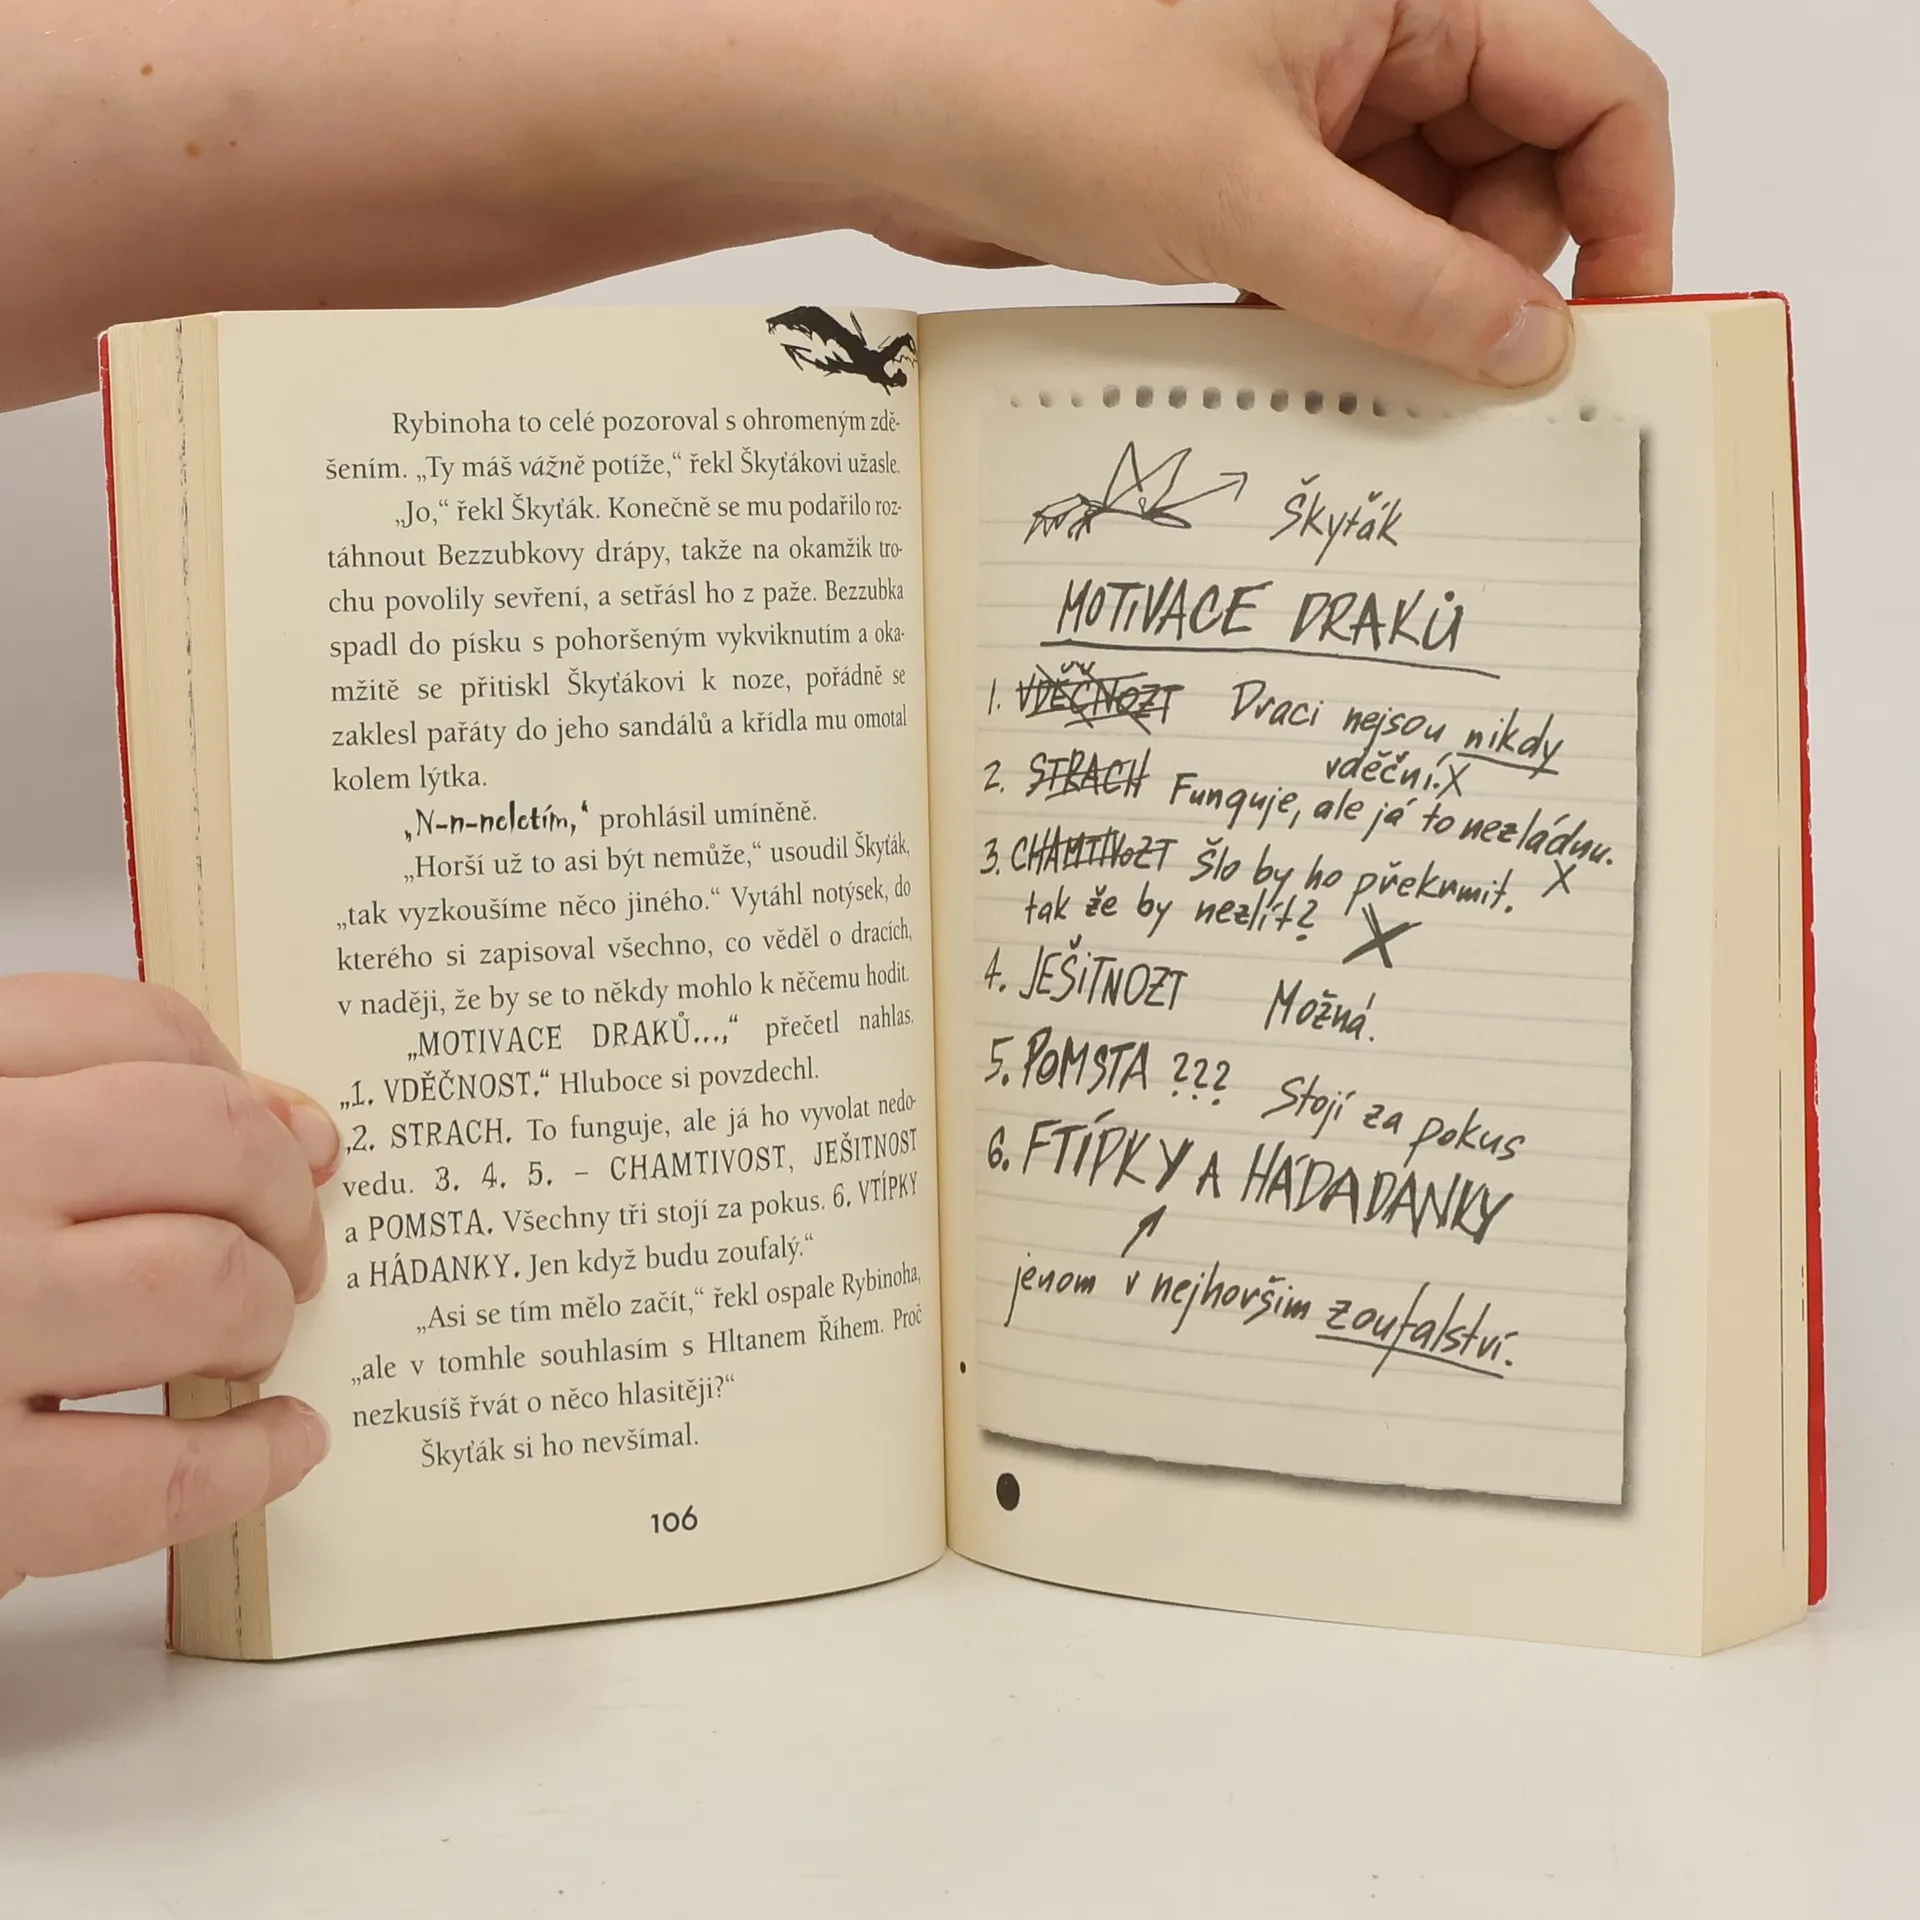 Rybinoha to celé pozoroval s ohromeným zdě-
šením. „Ty máš vážně potíže,“ řekl Škyťákovi užasle.
„Jo,“ řekl Škyťák. Konečně se mu podařilo roz-
táhnout Bezzubkovy drápy, takže na okamžik tro-
chu povolily sevření, a setřásl ho z paže. Bezzubka
spadl do písku s pohoršeným vykviknutím a oka-
mžitě se přitiskl Škyťákovi k noze, pořádně se
zaklesl pařáty do jeho sandálů a křídla mu omotal
kolem lýtka.
„N-n-neletím,“ prohlásil umíněně.
„Horší už to asi být nemůže,“ usoudil Škyťák,
„tak vyzkoušíme něco jiného.“ Vytáhl notýsek, do
kterého si zapisoval všechno, co věděl o dracích,
v naději, že by se to někdy mohlo k něčemu hodit.
„MOTIVACE DRAKŮ...,“ přečetl nahlas.
„1. VDĚČNOST.“ Hluboce si povzdechl.
„2. STRACH. To funguje, ale já ho vyvolat nedo-
vedu. 3. 4. 5. – CHAMTIVOST, JEŠITNOST
a POMSTA. Všechny tři stojí za pokus. 6. VTÍPKY
a HÁDANKY. Jen když budu zoufalý.“
„Asi se tím mělo začít,“ řekl ospale Rybinoha,
„ale v tomhle souhlasím s Hltanem Říhem. Proč
nezkusíš řvát o něco hlasitěji?“
Škyťák si ho nevšímal.
106
Škyťák
MOTIVACE DRAKŮ
1. VDĚČNOZT Draci nejsou nikdy
vděční. X
2. STRACH Funguje, ale já to nezládnu.
X
3. CHAMTIVOZT Šlo by ho překrmit.
tak že by nezlít? X
4. JEŠITNOZT Možná.
5. POMSTA ??? Stojí za pokus
6. FTÍPKY A HÁDADANKY
jenom v nejhoršim zoufalství.